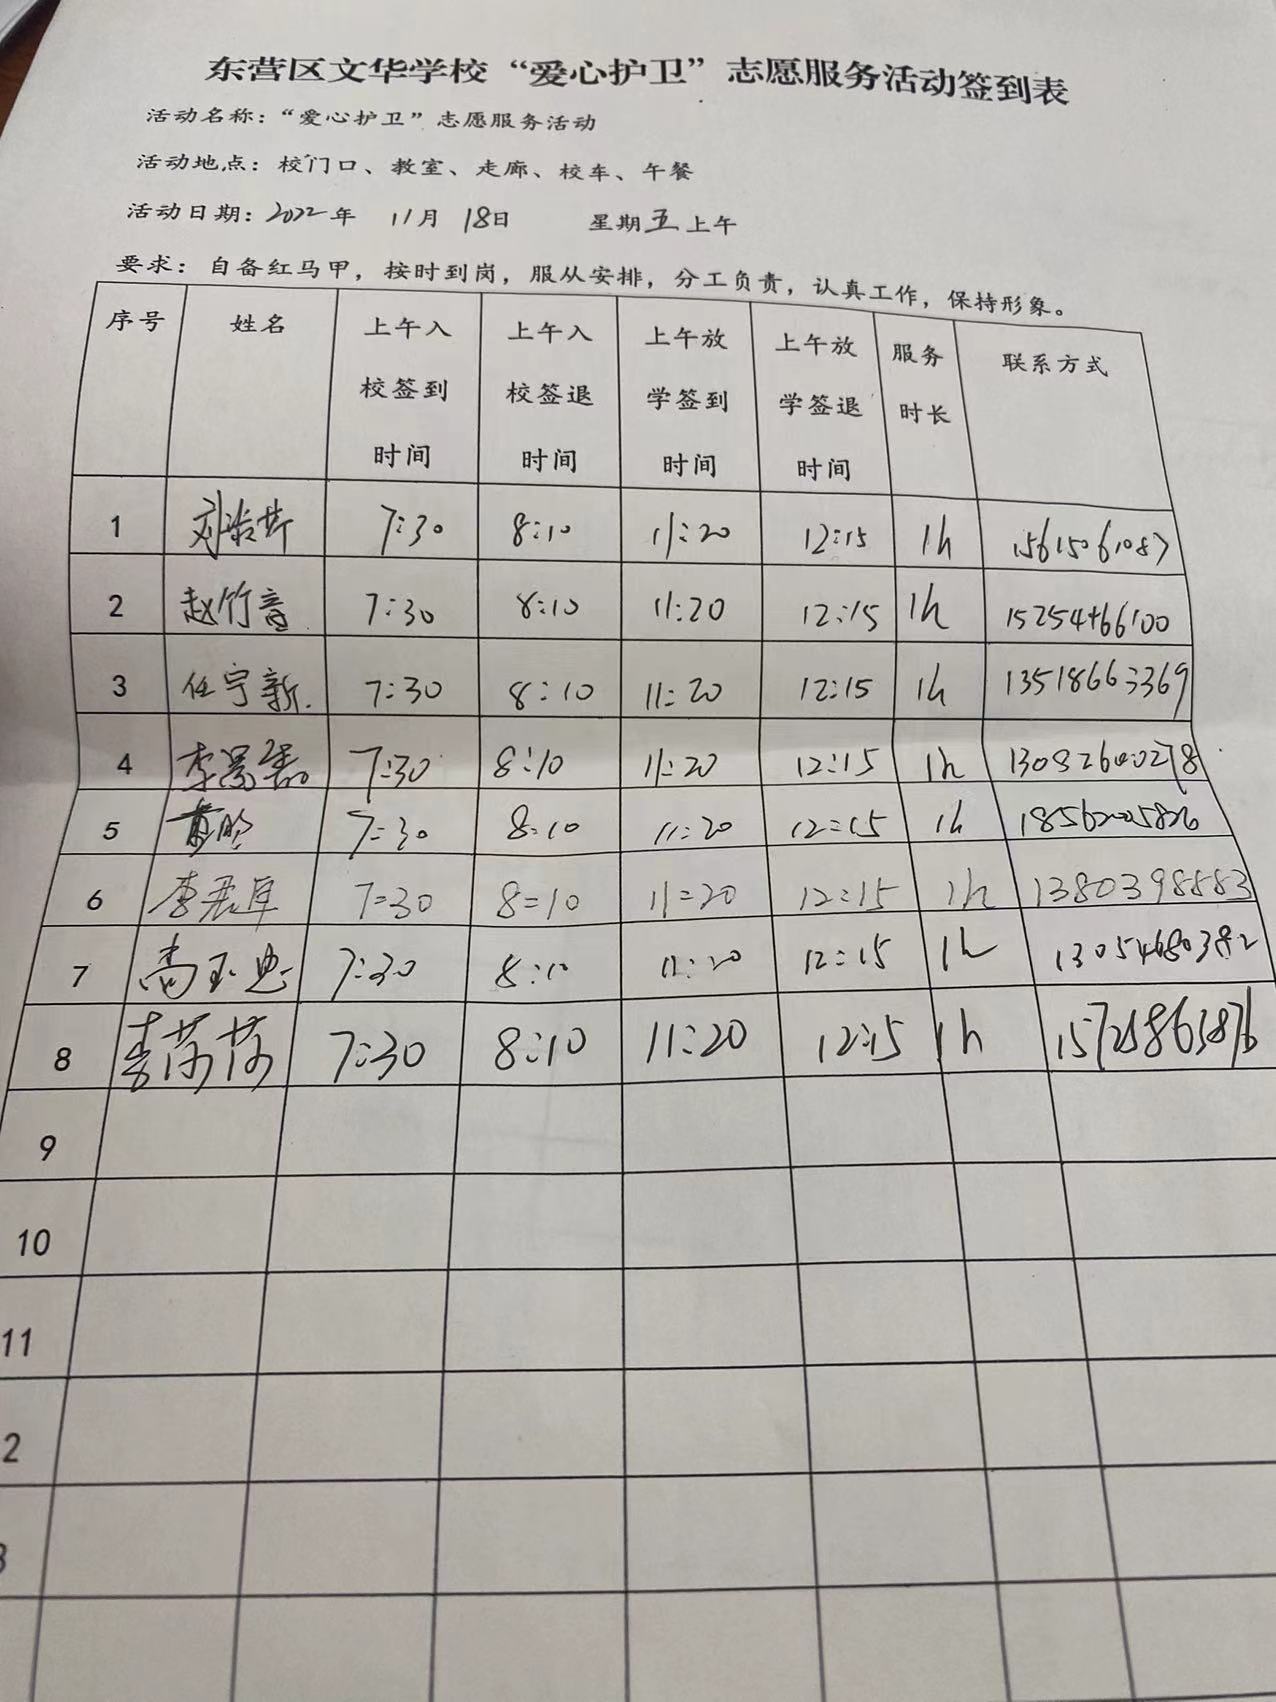 东营区文华学校“爱心护卫”志愿服务活动签到表
活动名称：“爱心护卫”志愿服务活动
活动地点：校门口、教室、走廊、校车、午餐
活动日期：2022年 11月 18日 星期五上午
要求：自备红马甲，按时到岗，服从安排，分工负责，认真工作，保持形象。
序号 姓名 上午入校签到时间 上午入校签退时间 上午放学签到时间 上午放学签退时间 服务时长 联系方式
1 7:30 8:10 11:20 12:15 1h 15615061087
2 赵竹音 7:30 8:10 11:20 12:15 1h 15254466100
3 任宁新 7:30 8:10 11:20 12:15 1h 13518663369
4 7:30 8:10 11:20 12:15 1h
5 7:30 8:10 11:20 12:15 1h 18562025826
6 李君卓 7:30 8:10 11:20 12:15 1h 1380398883
7 7:30 8:10 11:20 12:15 1h 13054680382
8 李莎莎 7:30 8:10 11:20 12:15 1h
9
10
11
2
3